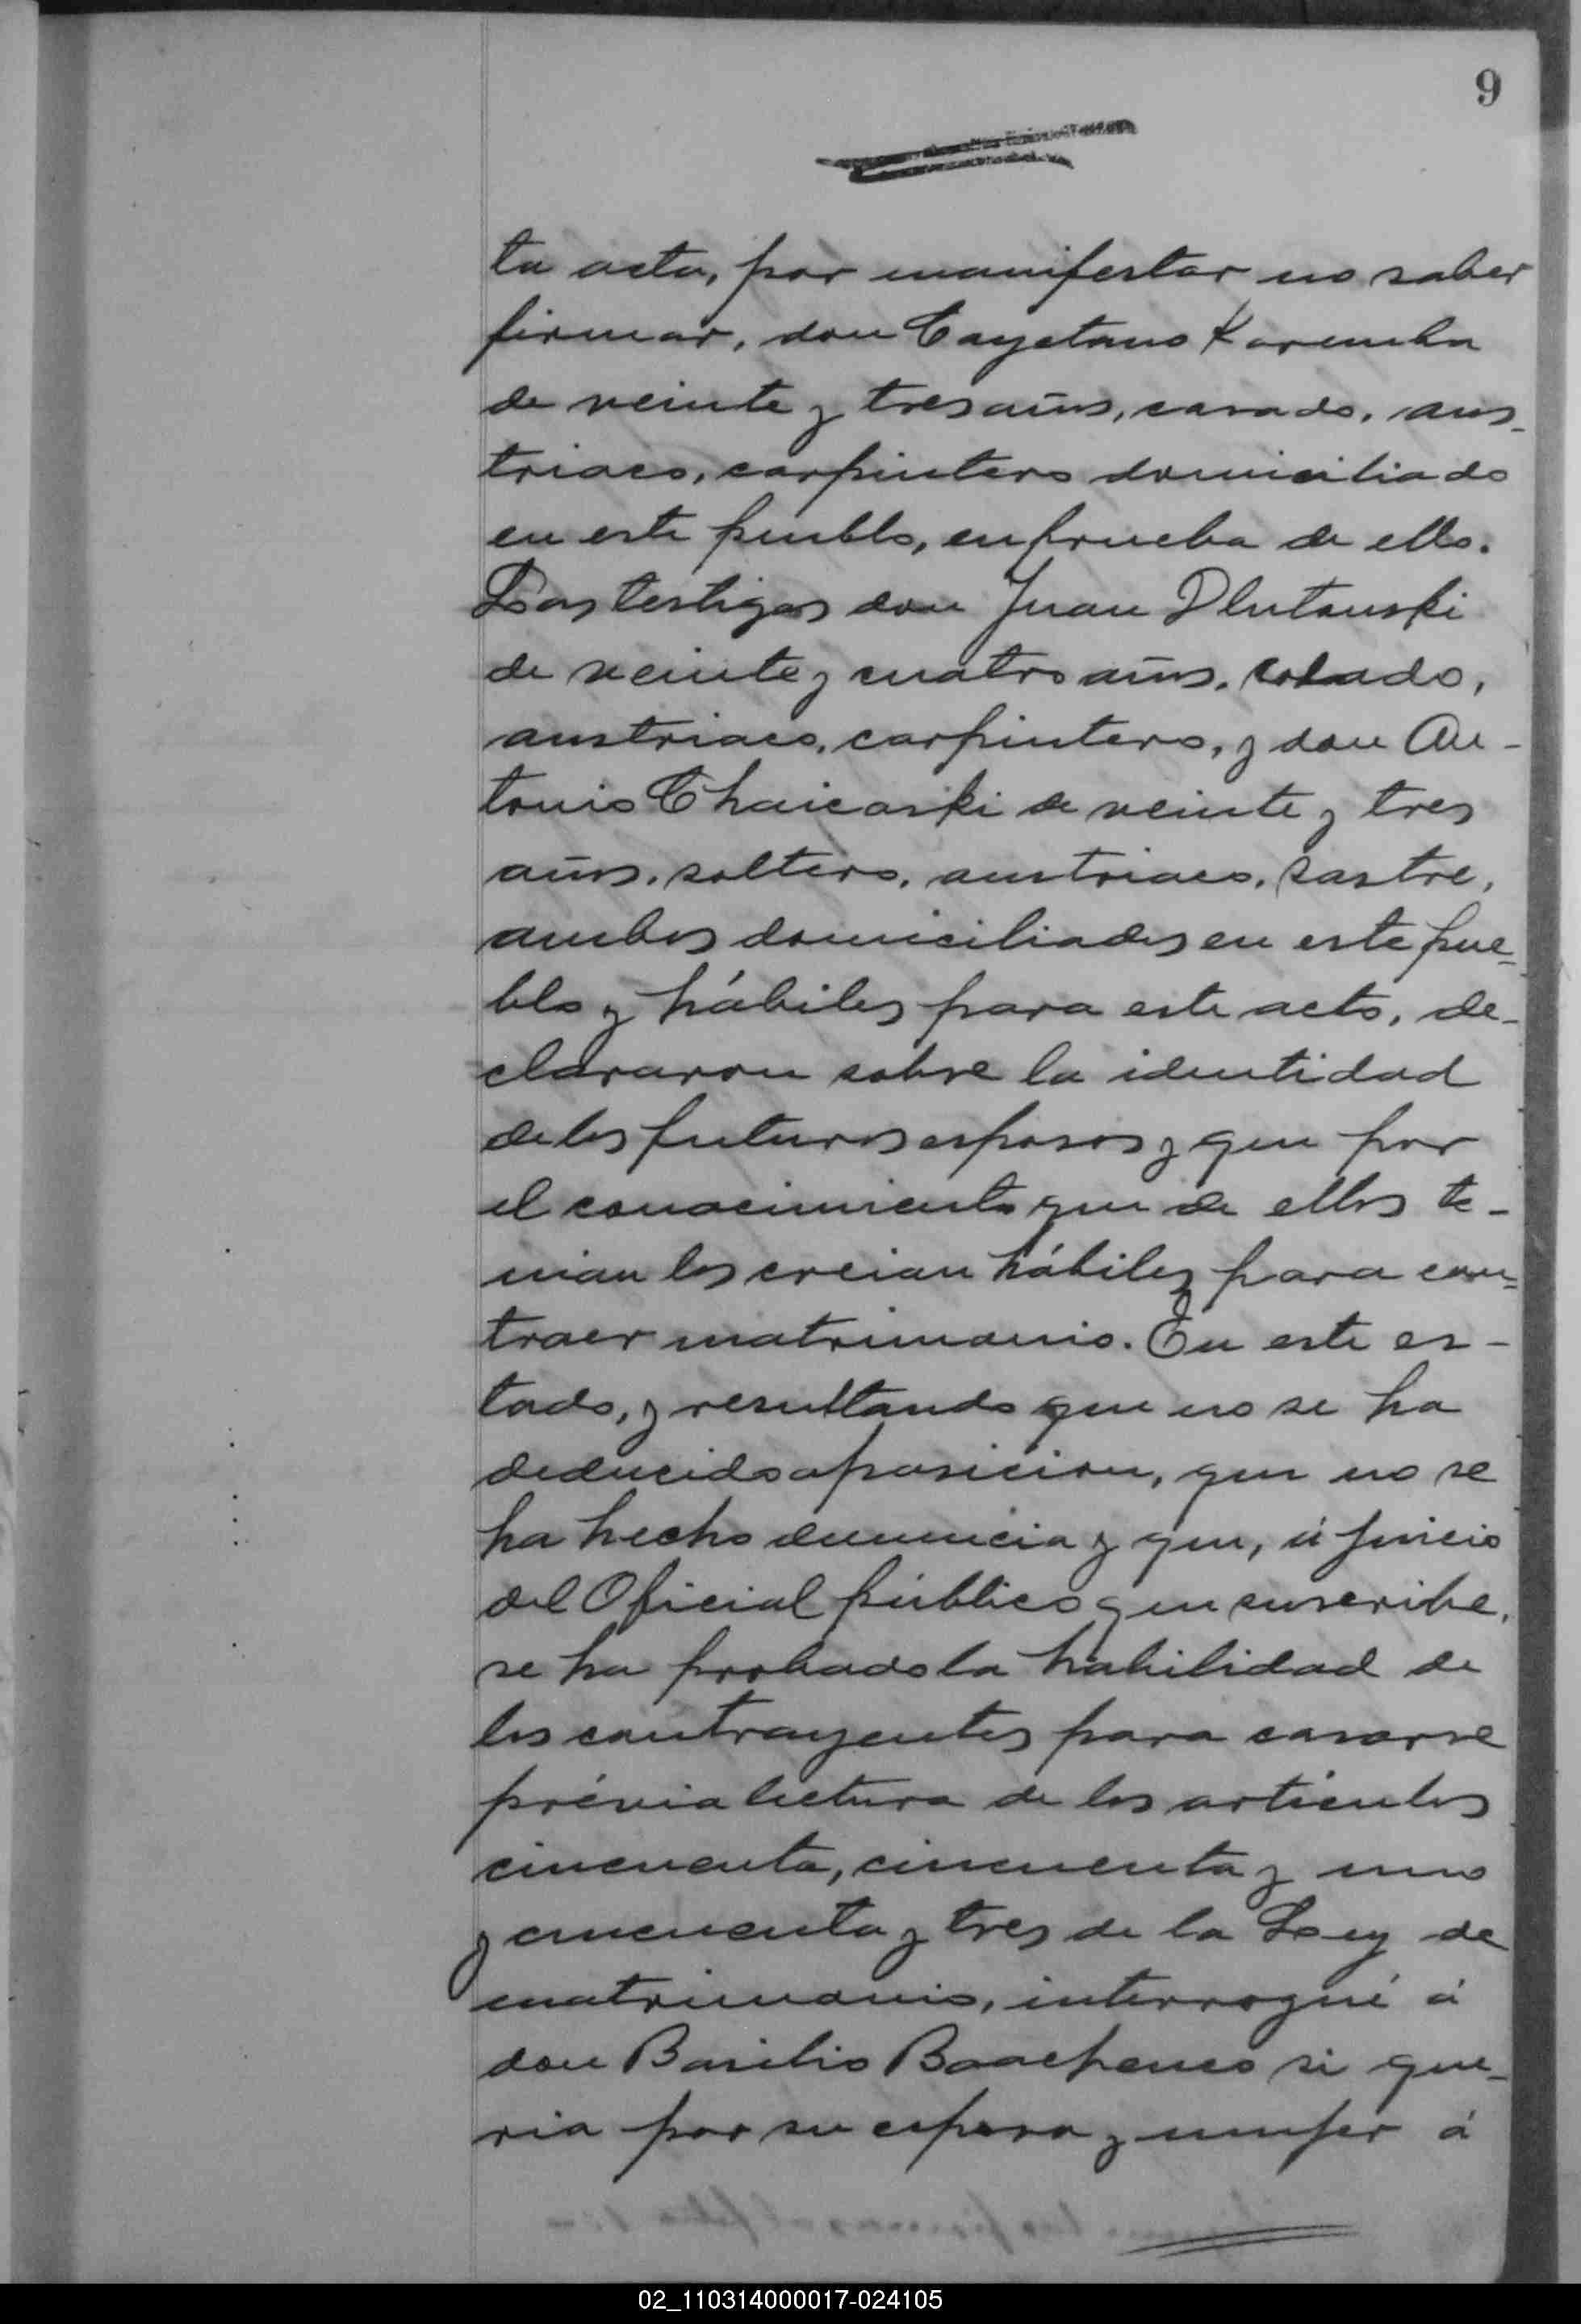 9
ta acta, por manifestar no saber
firmar, don Cayetano Karemba
de veinte y tres años, casado, aus-
triaco, carpintero domiciliado
en este pueblo, en prueba de ello.
Los testigos don Juan Dlutouski
de veinte y cuatro años, casado,
austriaco, carpintero, y don An-
tonio Chaicoski de veinte y tres
años, soltero, austriaco, sastre,
ambos domiciliados en este pue=
blo y hábiles para este acto, de-
clararon sobre la identidad
de los futuros esposos y que por
el conocimiento que de ellos te-
nian los creian hábiles para con=
traer matrimonio. En este es-
tado, y resultando que no se ha
deducido oposicion, que no se
ha hecho denuncia y que, á juicio
del Oficial público que suscribe,
se ha probado la habilidad de
los contrayentes para casarse
prévia lectura de los artículos
cincuenta, cincuenta y uno
y cincuenta y tres de la Ley de
matrimonio, interrogué á
don Basilio si que-
ria por su esposa y mujer á
02_110314000017-024105